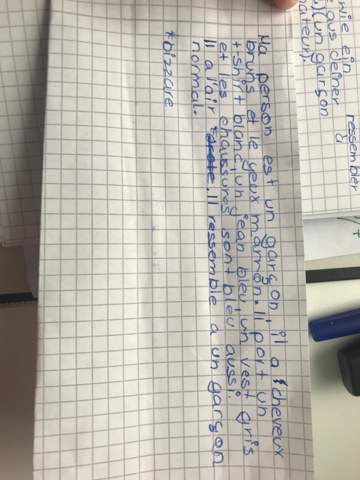 wie ein
ressembler
aus deiner
à
un garçon
Ma person est un garçon il a cheveux
bruns et le yeux marron. Il port un
t-shirt blanc, un jean bleu, un vest gris
et les chaussures sont bleu aussi.
Il a l'air *. Il ressemble a un garçon
normal.
*bizzare